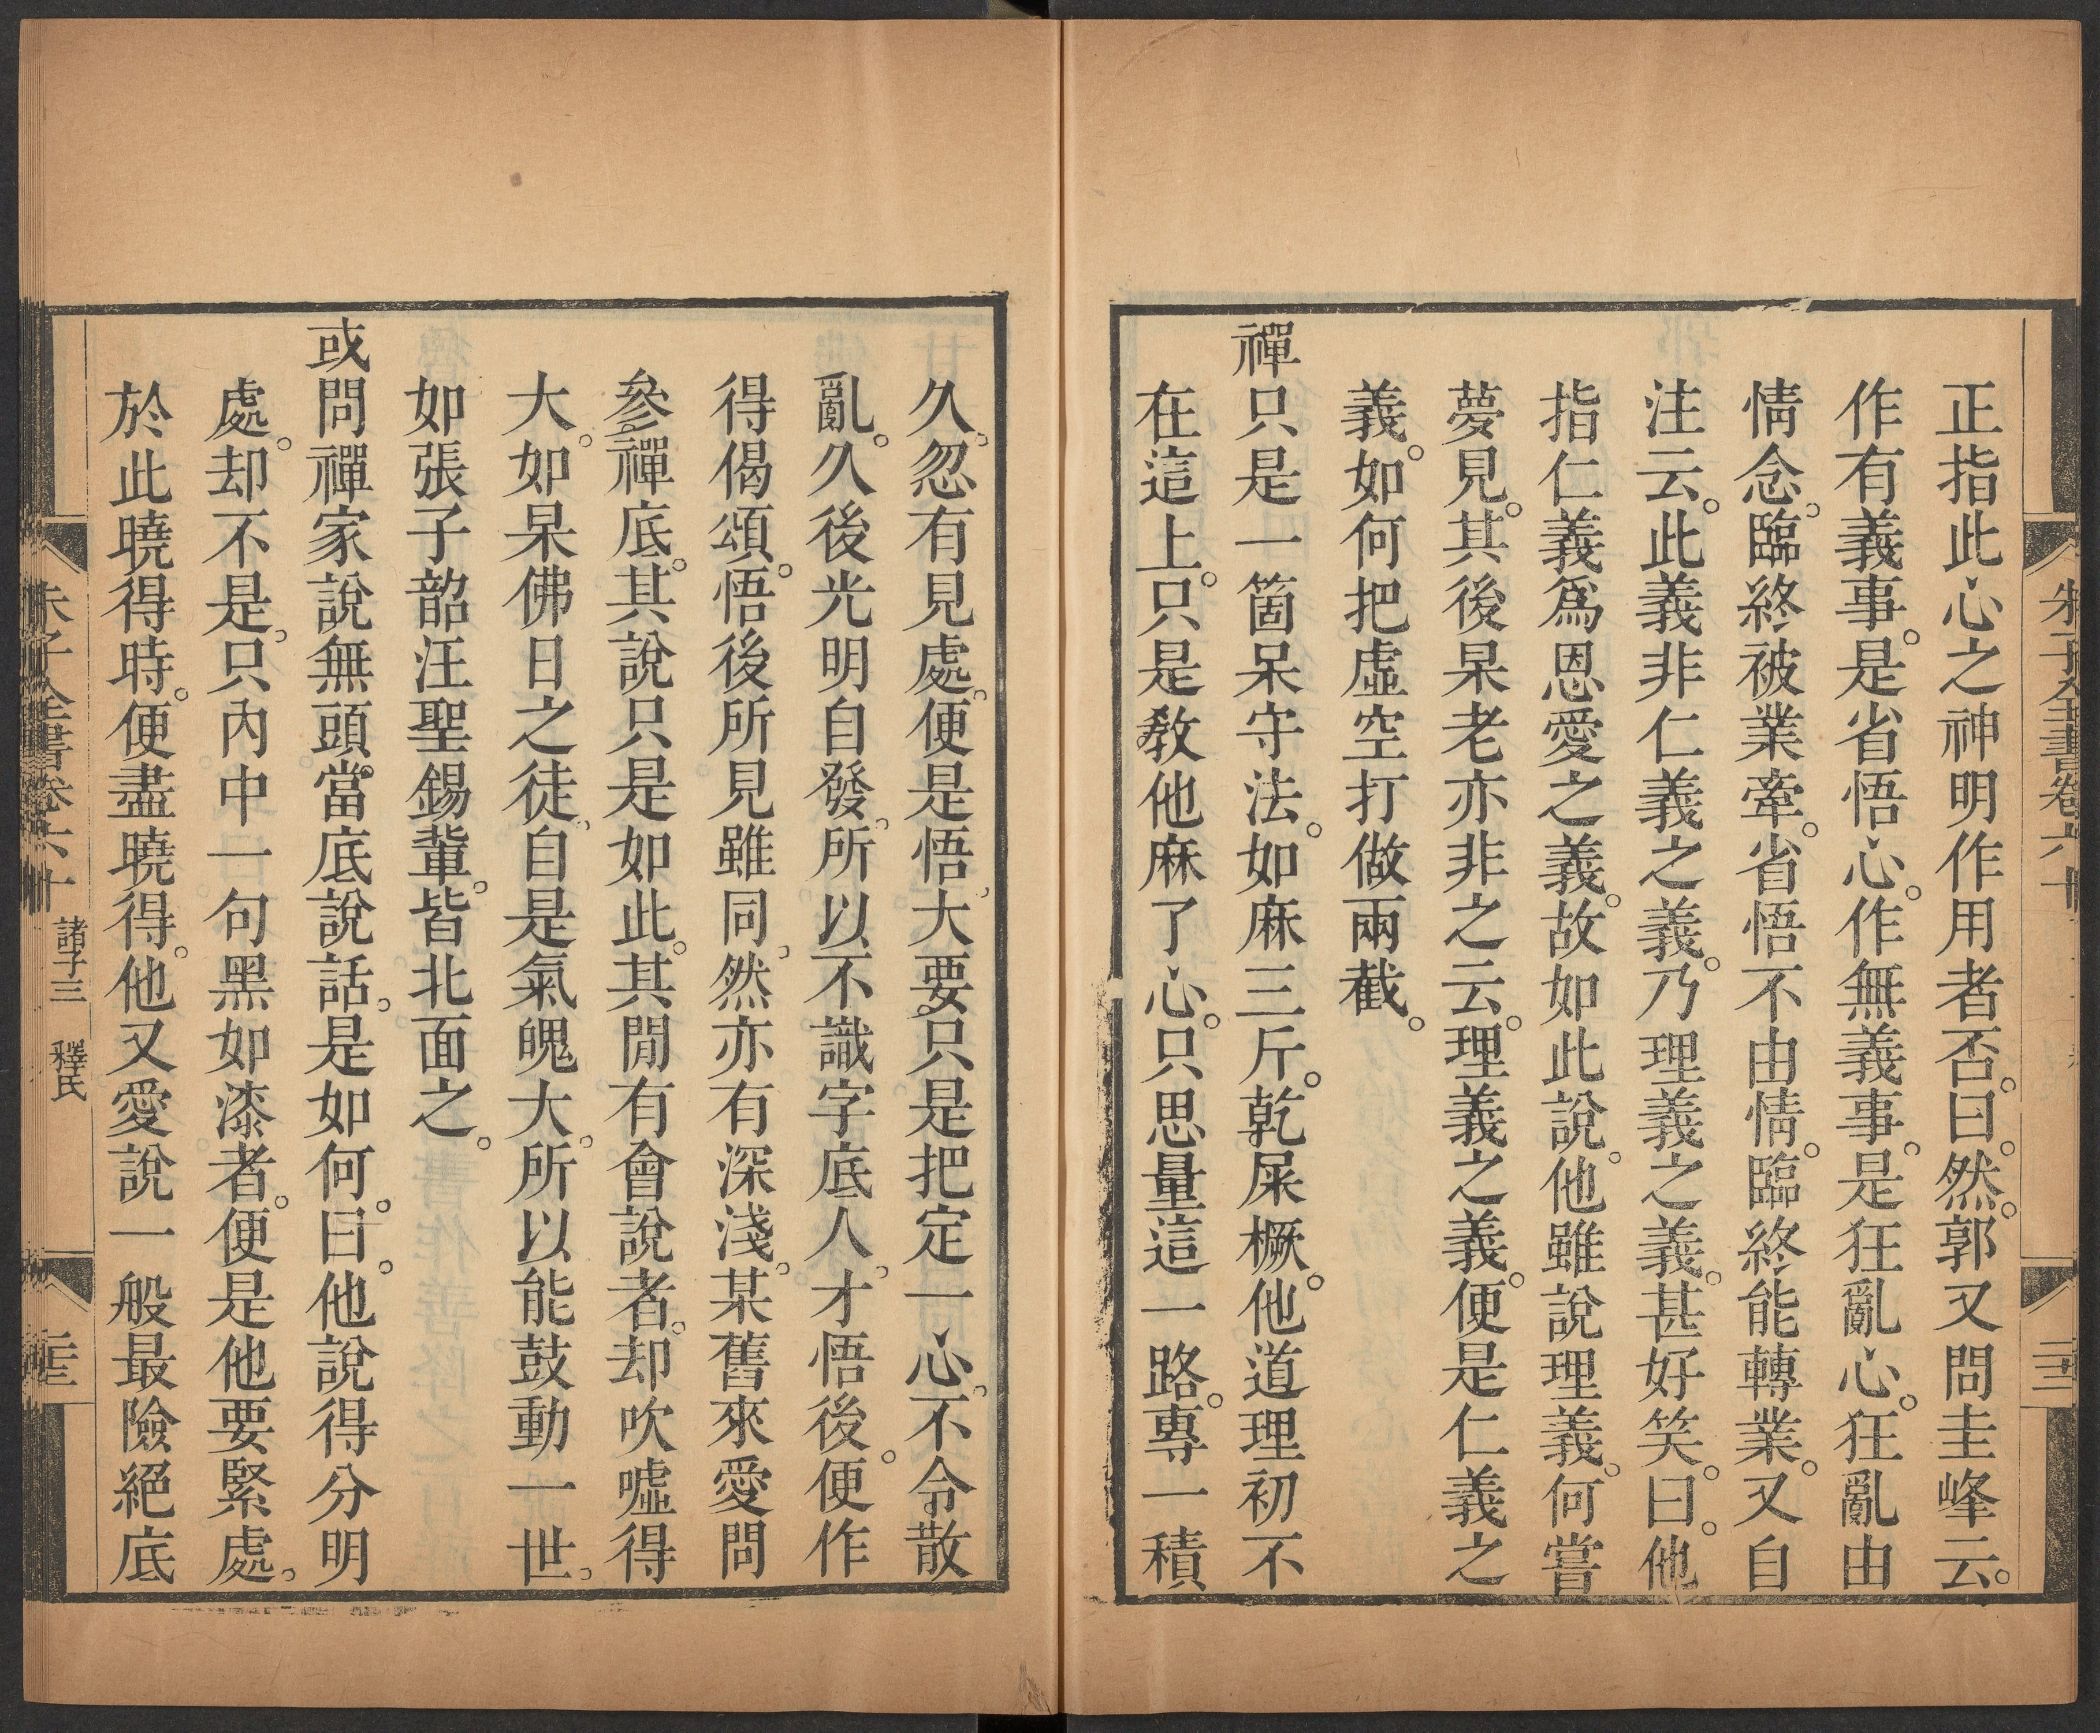 正指此心之神明作用者否。曰。然。郭又問圭峰云。
作有義事。是省悟心。作無義事。是狂亂心。狂亂由
情念。臨終被業牽。省悟不由情。臨終能轉業。又自
注云。此義非仁義之義。乃理義之義。甚好笑。曰。他
指仁義爲恩愛之義。故如此說。他雖說理義。何嘗
夢見。其後杲老亦非之云。理義之義。便是仁義之
義。如何把虛空打做兩截。
禪只是一箇呆守法。如麻三斤。乾屎橛。他道理初不
在這上。只是敎他麻了心。只思量這一路。專一積
久。忽有見處。便是悟。大要。只是把定一心。不令散
亂。久後光明自發。所以不識字底人。才悟後。便作
得偈頌。悟後所見雖同。然亦有深淺。某舊來愛問
參禪底。其說只是如此。其閒有會說者。却吹噓得
大。如杲佛日之徒。自是氣魄大。所以能鼓動一世。
如張子韶汪聖錫輩。皆北面之。
或問禪家說無頭。當底說話。是如何。曰。他說得分明
處。却不是。只內中一句黑如漆者。便是他要緊處。
於此曉得時。便盡曉得。他又愛說一般最險絕底
朱子全書卷六十 諸子三 釋氏